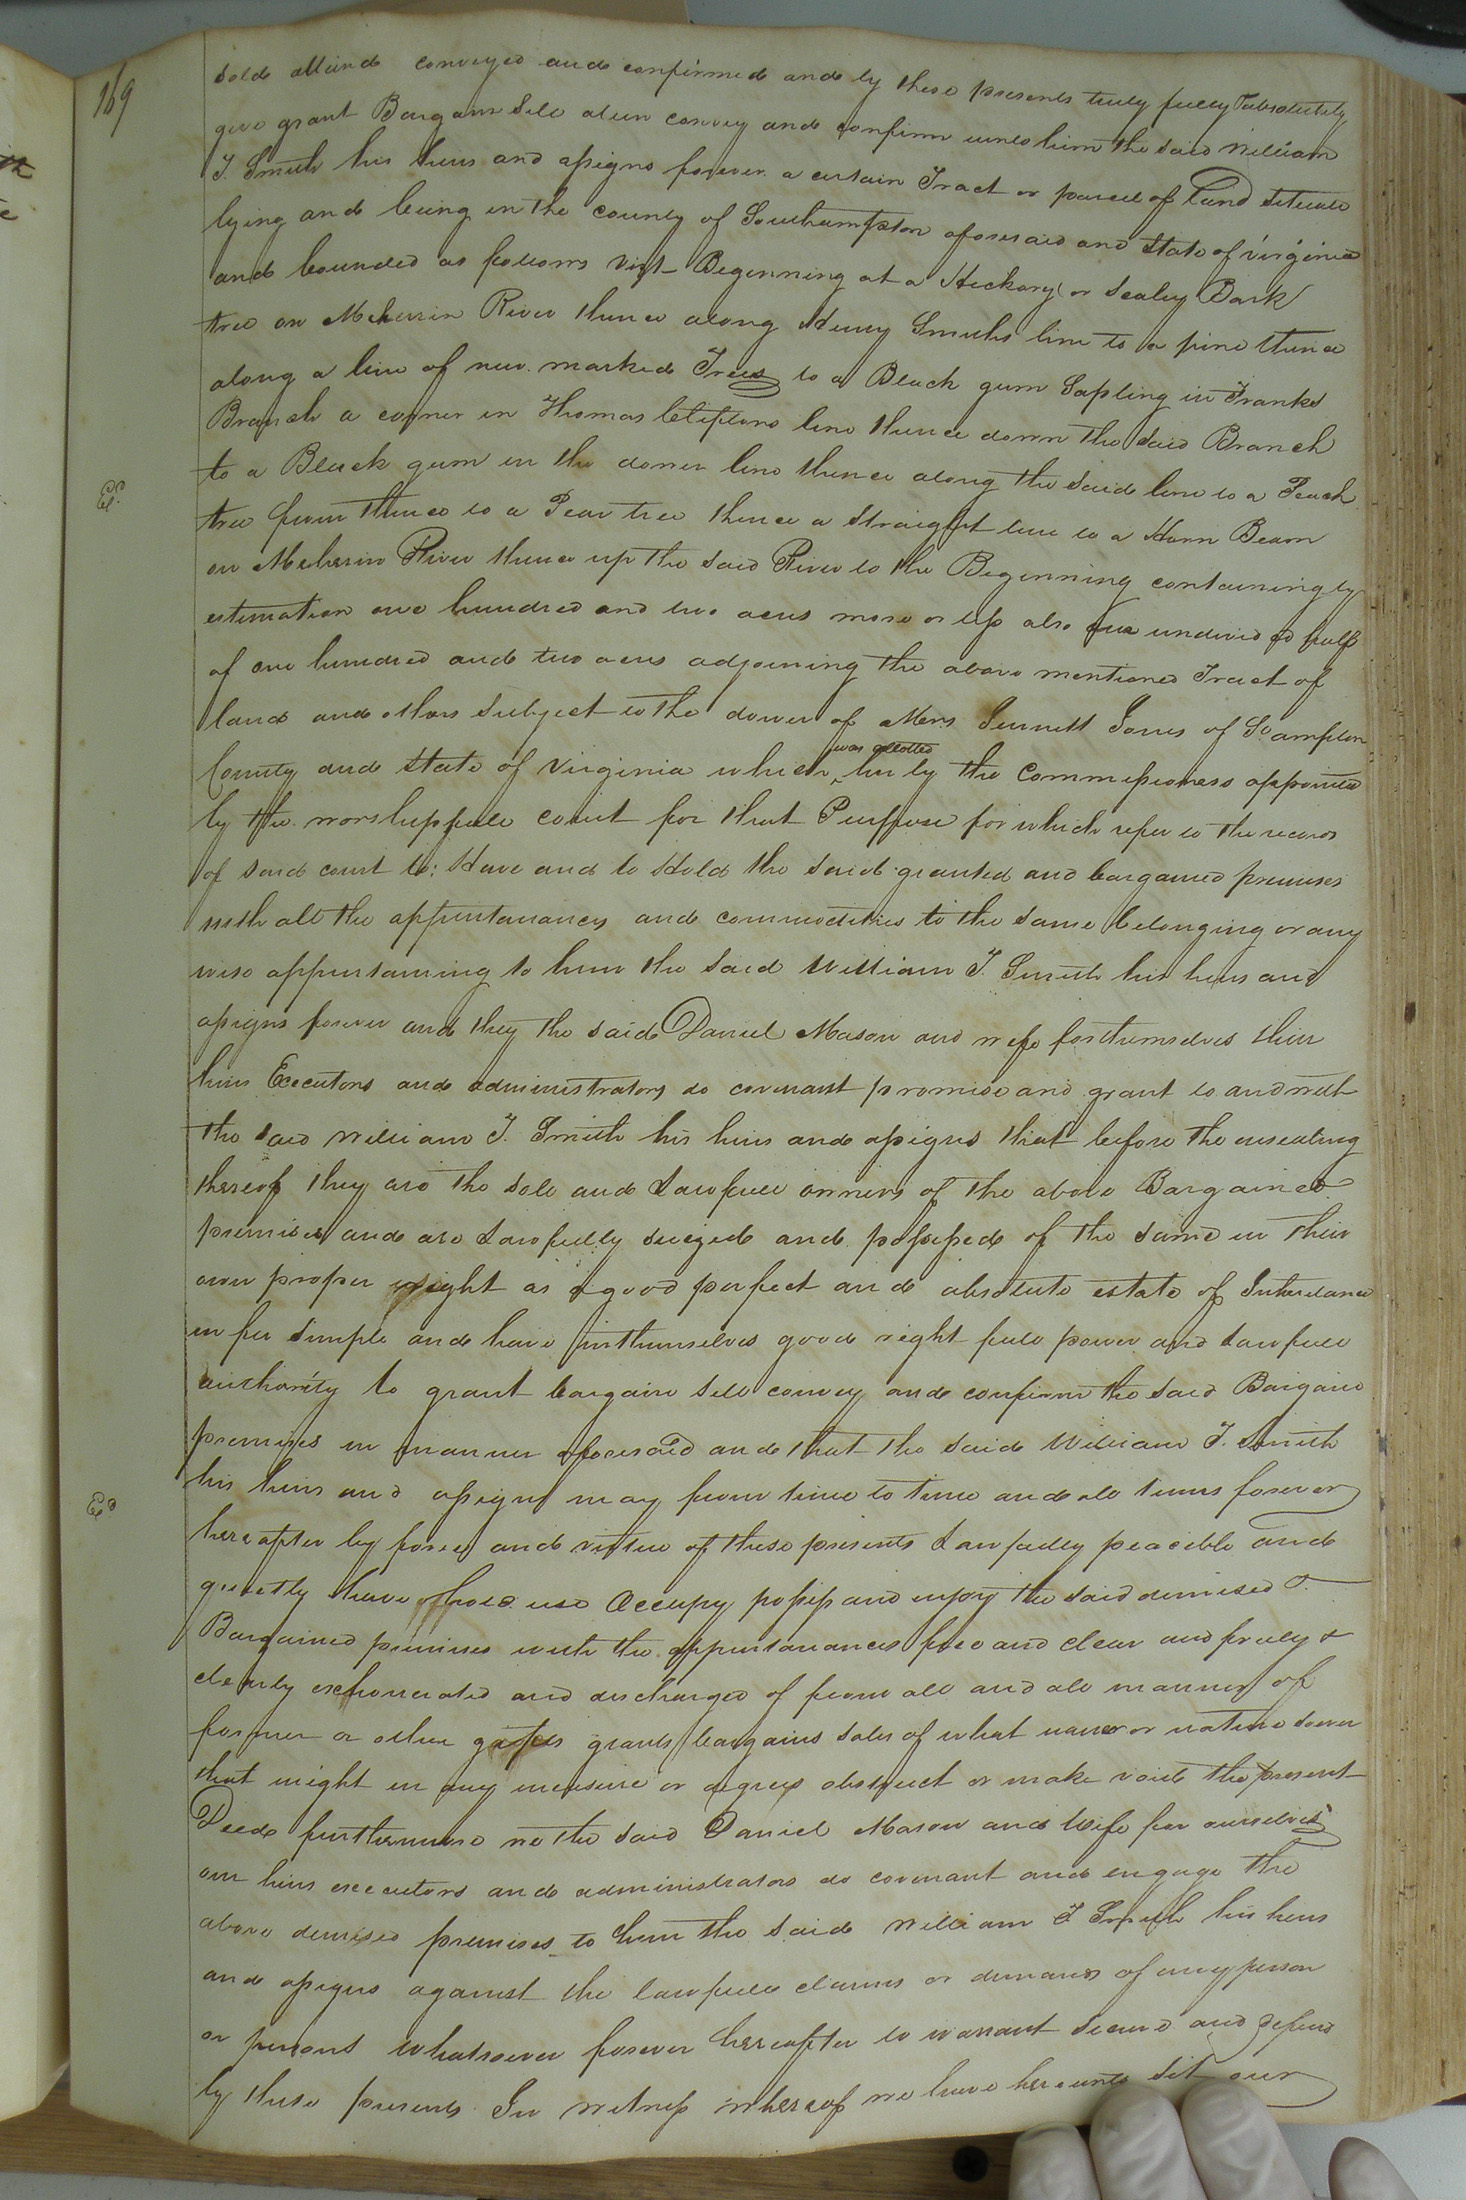 169
sold aliend conveyed and confirmed and by these presents truly fully & absolutely
give grant Bargain Sell alien convey and confirm unto him the said William
T. Smith his heirs and assigns forever a certain Tract or parcel of Land situate
lying and being in the county of Southampton aforesaid and State of virginia
and bounded as follows Vizt Beginning at a Hickory or Scaley Bark
tree on Meherrin River thence along Henry Smiths line to a pine thence
along a line of new marked Trees to a Black gum Sapling in Franks
Branch a corner in Thomas line thence down the said Branch
to a Black gum in the dower line thence along the said line to a Peach
tree from thence to a Pear tree thence a straight line to a Horn Beam
on Meherrin River thence up the said River to the Beginning containing by
estimation one hundred and two acres more or less also one undivided half
of one hundred and two acres adjoining the above mentioned Tract of
land and others subject to the dower of Mrs Jones of So.ampton
County and State of Virginia which was allotted her by the Commissioners appointed
by the worshipfull court for that Purpose for which refer to the records
of said court to: Have and to Hold the said granted and bargained premises
with all the appurtanances and commodities to the same belonging or any
wise appurtaining to him the said William T. Smith his heirs and
assigns forever and they the said Daniel Mason and wife for themselves their
heirs Executors and administrators do covenant promise and grant to and with
the said William T. Smith his heirs and assigns that before the ensealing
thereof they are the sole and Lawfull owners of the above Bargained
premises and are Lawfully seized and possessed of the same in their
own proper right as a good perfect and absolute estate of Inheritance
in fee simple and have in themselves good right full power and Lawfull
authority to grant bargain sell convey and confirm the said Bargaind
premises in manner aforesaid and that the said William T. Smith
his heirs and assigns may from time to time and all times forever
hereafter by force and virtue of these presents Lawfully peacible and
quietly have hold use Occupy possess and enjoy the said demised &
Bargained premises with the appurtanances free and clear and freely &
clearly exhonerated and discharged of from all and all manner of
former or other gifts grants bargains sales of what name or nature soever
that might in any measure or degree obstruct or make void the present
Deed furthermore we the said Daniel Mason and Wife for ourselves
our heirs executors and administrators do covenant and engage the
above demised premises to him the said William T Smith his heirs
and assigns against the lawfull claims or demands of any person
or persons whatsoever forever hereafter to warrant secure and defend
by these presents In witness whereof we have hereunto set our